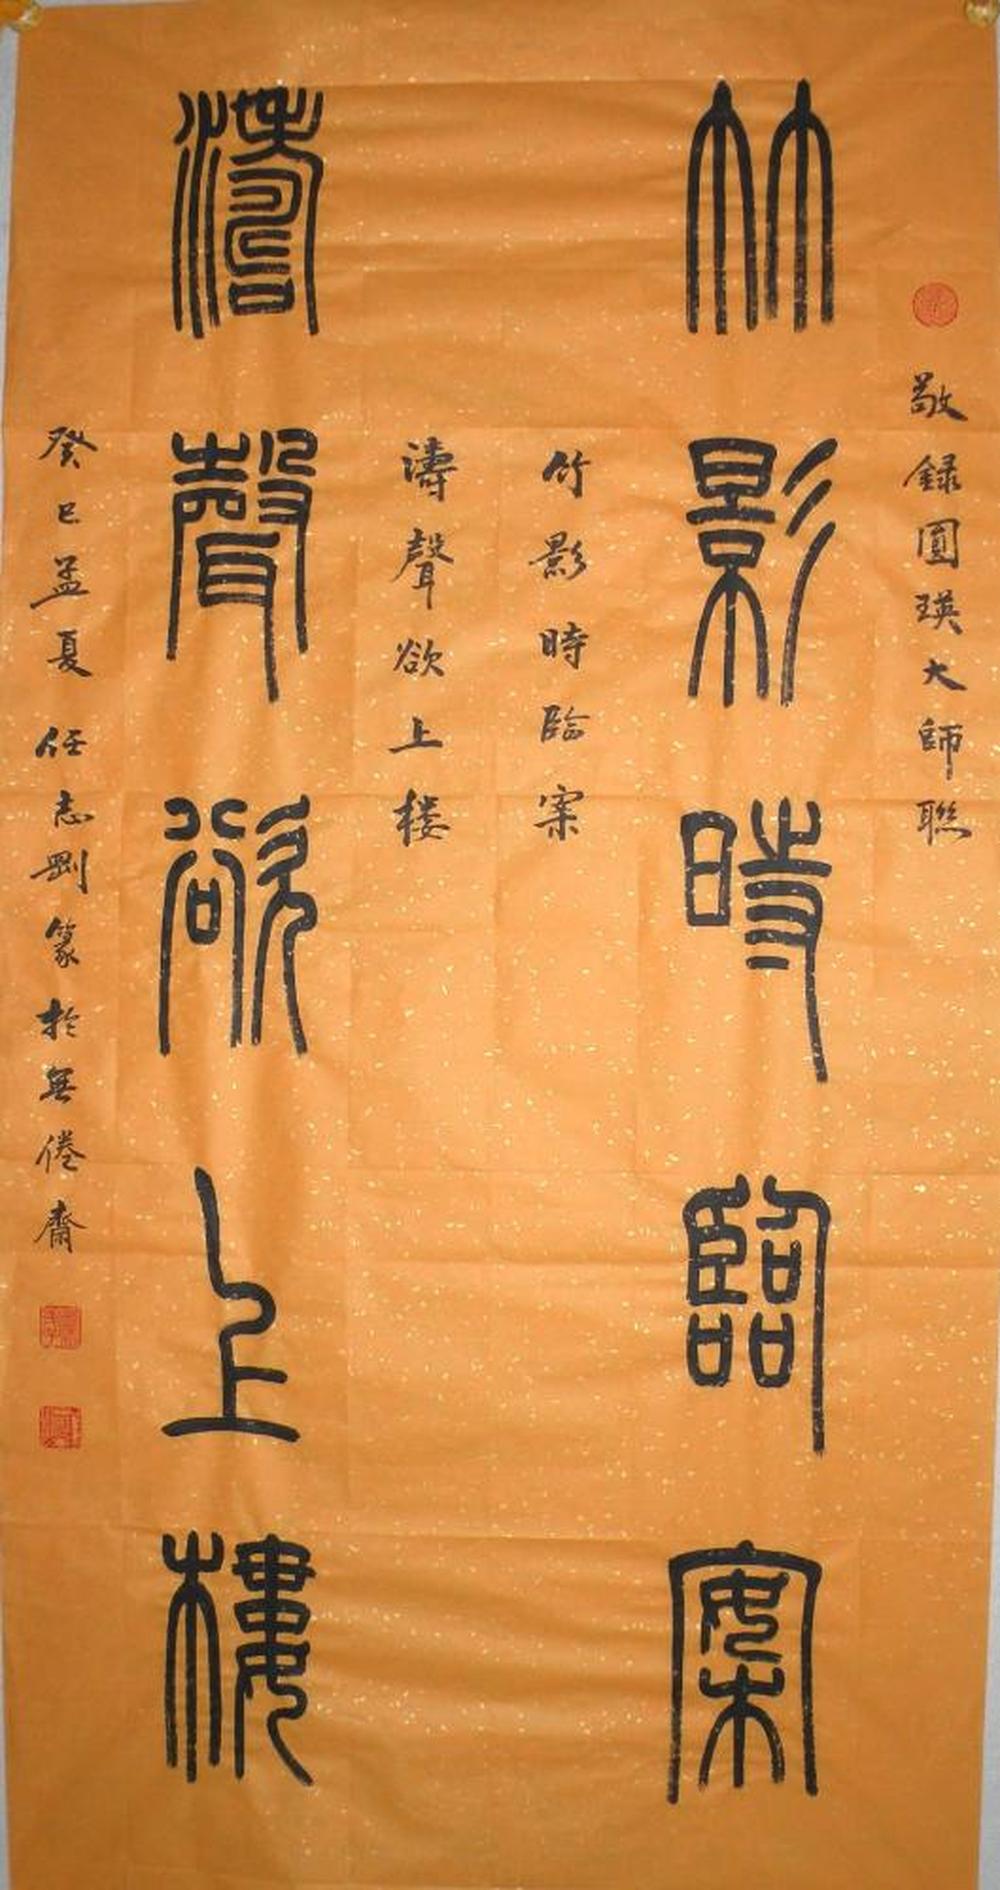 敬録圓瑛大師聯
竹影時臨案
竹影時臨案
濤聲欲上楼
濤聲欲上樓
癸巳孟夏任志剛篆於無倦齋